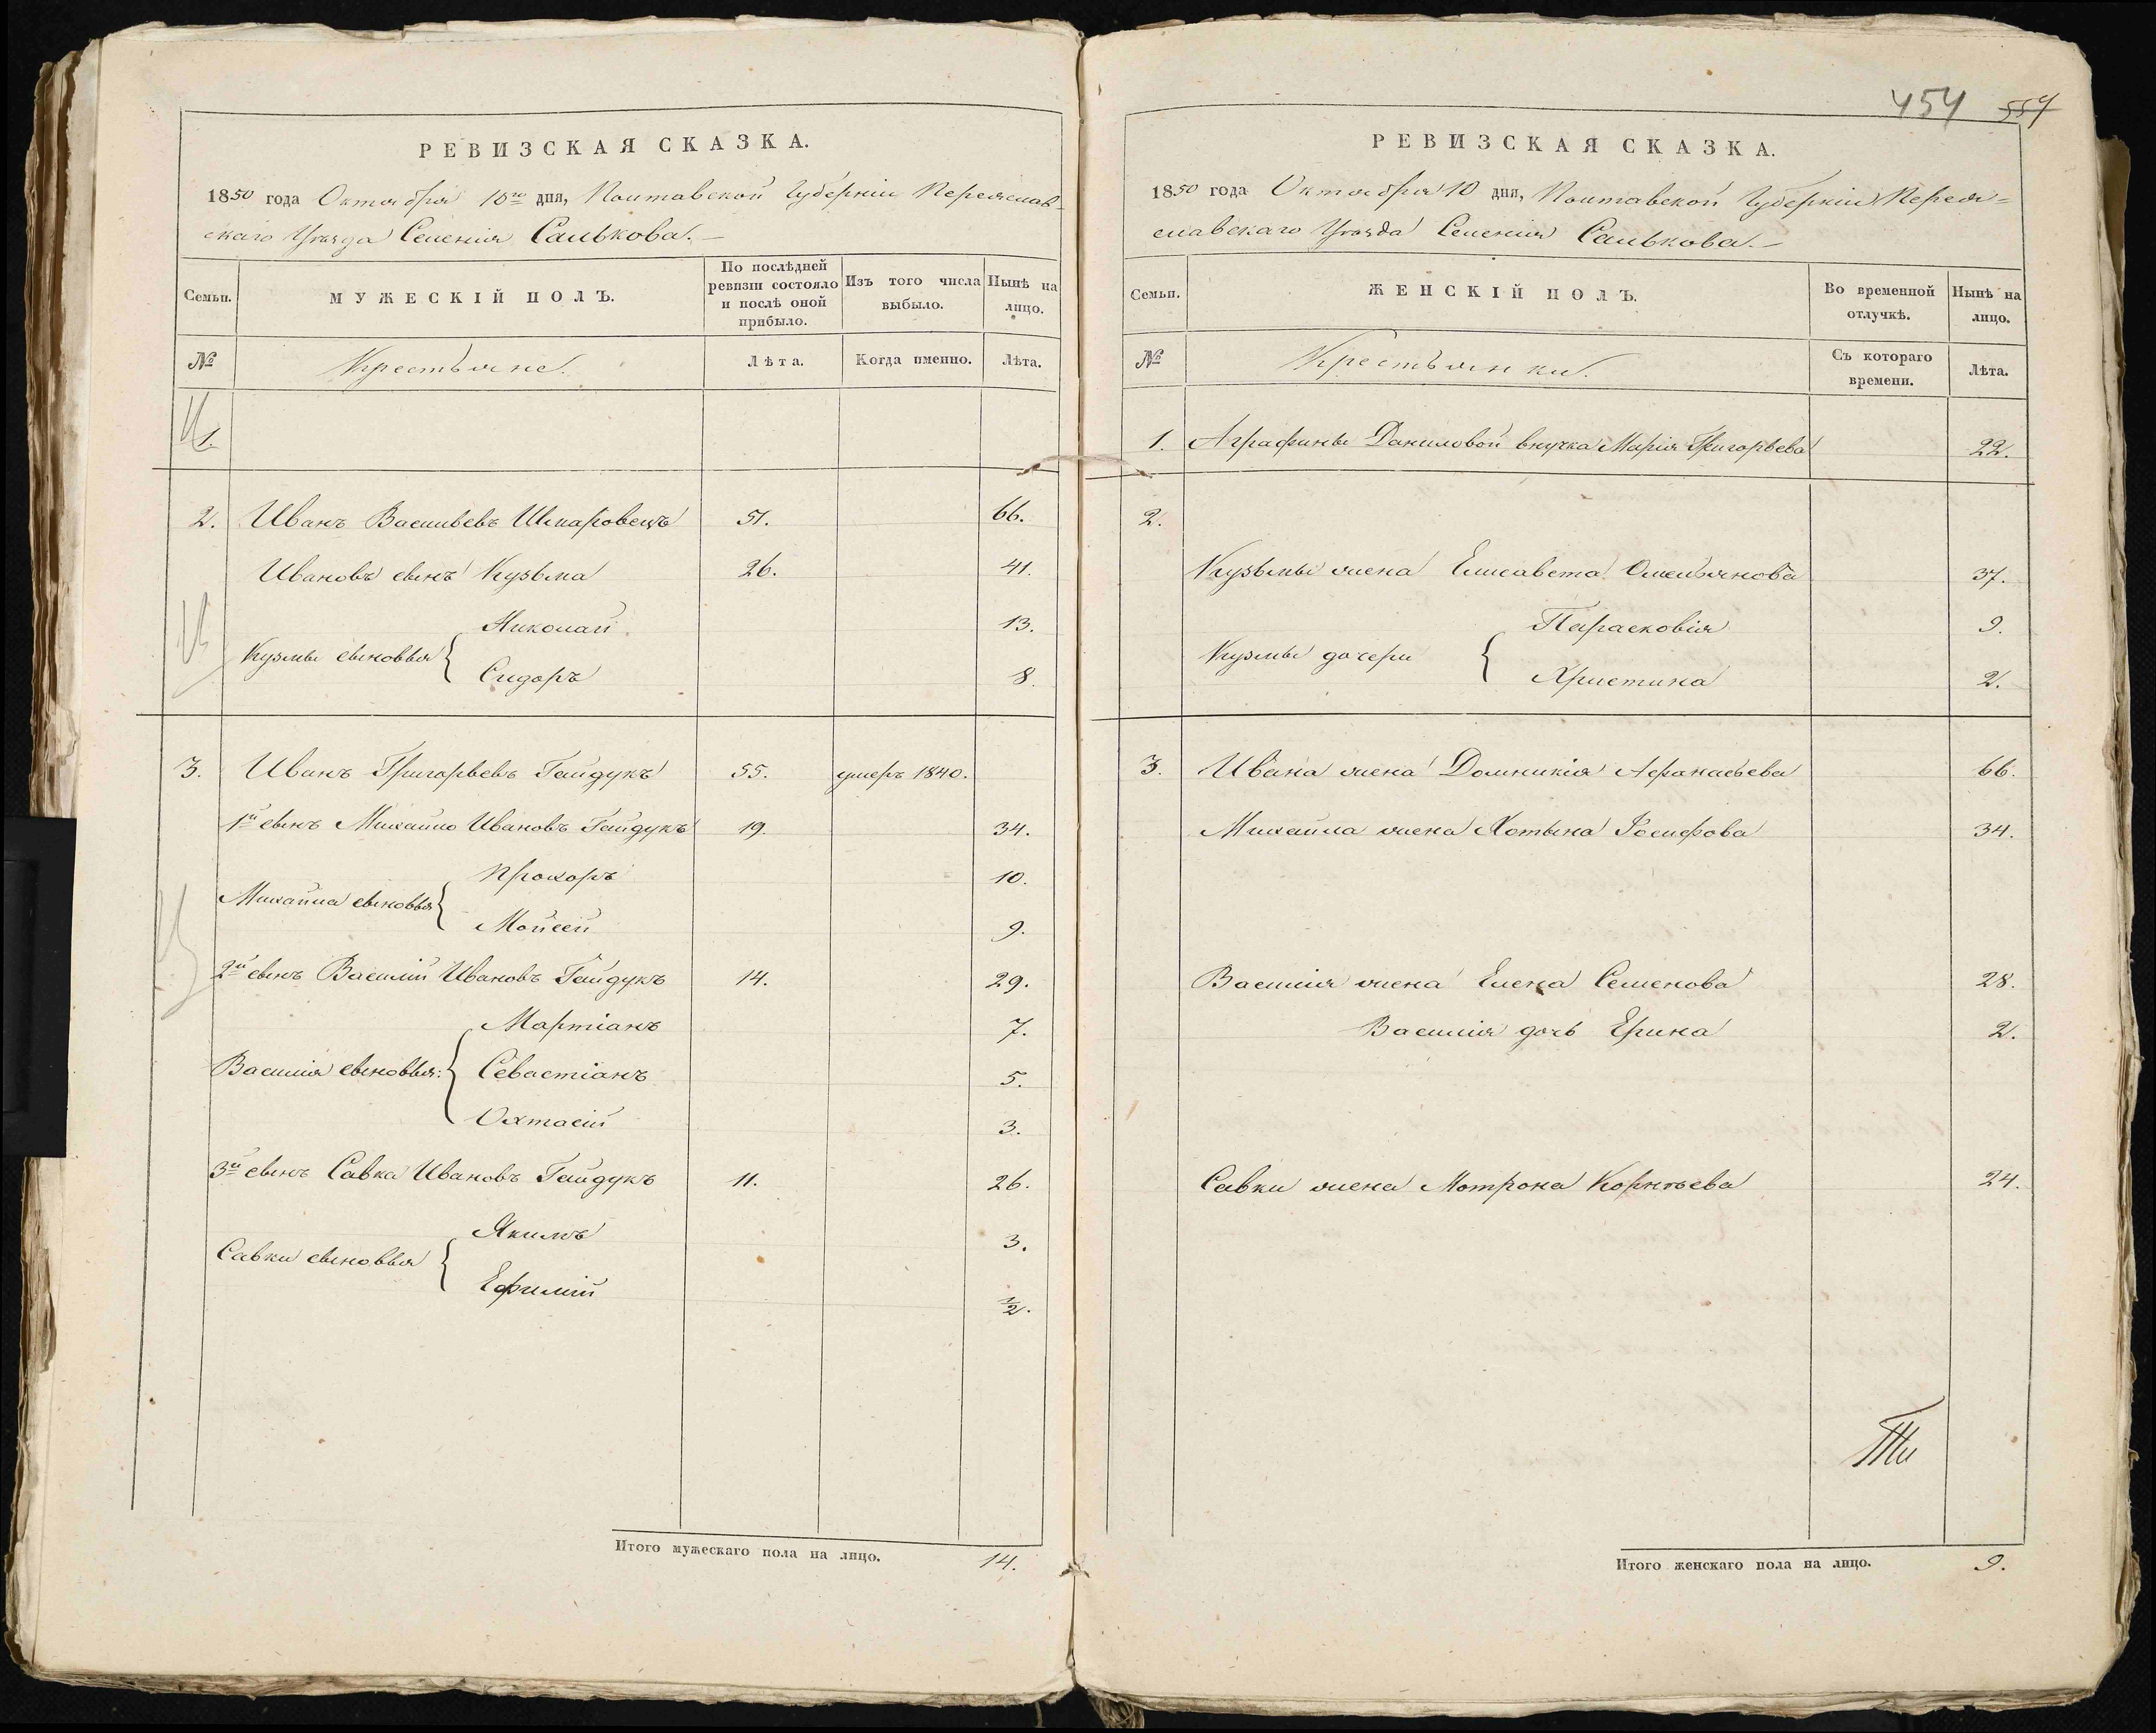 454 554
РЕВИЗСКАЯ СКАЗКА.
1850 года Октября 10го дня, Полтавской Губерніи Переяслав-
скаго Уѣзда Селенія Салькова.
Семьи.
МУЖЕСКІЙ ПОЛЪ.
По послѣдней ревизіи состояло и послѣ оной прибыло.
Изъ того числа выбыло.
Нынѣ на лицо.
№
Крестьяне.
Лѣта.
Когда именно.
Лѣта.
1.
2. Иванъ Васильевъ Шкаровецъ 51. 66.
Ивановъ сынъ Кузьма 26. 41.
Кузмы сыновья { Николай 13.
Сидоръ 8.
3. Иванъ Григорьевъ Гайдукъ 55. умеръ 1840.
1й сынъ Михайло Ивановъ Гайдукъ 19. 34.
Михайла сыновья { Прохоръ 10.
Мойсей 9.
2й сынъ Василій Ивановъ Гайдукъ 14. 29.
Василія сыновья: { Мартіанъ 7.
Севастіанъ 5.
Охтасій 3.
3й сынъ Савка Ивановъ Гайдукъ 11. 26.
Савки сыновья { Якимъ 3.
Ефимій ½.
Итого мужескаго пола на лицо. 14.
РЕВИЗСКАЯ СКАЗКА.
1850 года Октября 10 дня, Полтавской Губерніи Перея-
славскаго Уѣзда Селенія Салькова.
Семьи.
ЖЕНСКІЙ ПОЛЪ.
Во временной отлучкѣ.
Нынѣ на лицо.
№
Крестьянки.
Съ котораго времени.
Лѣта.
1. Аграфины Даниловой внучка Марія Григорьева 22.
2.
Кузьмы жена Елисавета Омельянова 37.
Кузмы дочери { Парасковія 9.
Христина 2.
3. Ивана жена Домникія Афанасьева 66.
Михайла жена Хотына Іосифова 34.
Василія жена Елена Семенова 28.
Василія дочь Ерина 2.
Савки жена Мотрона Корнѣева 24.
Итого женскаго пола на лицо. 9.